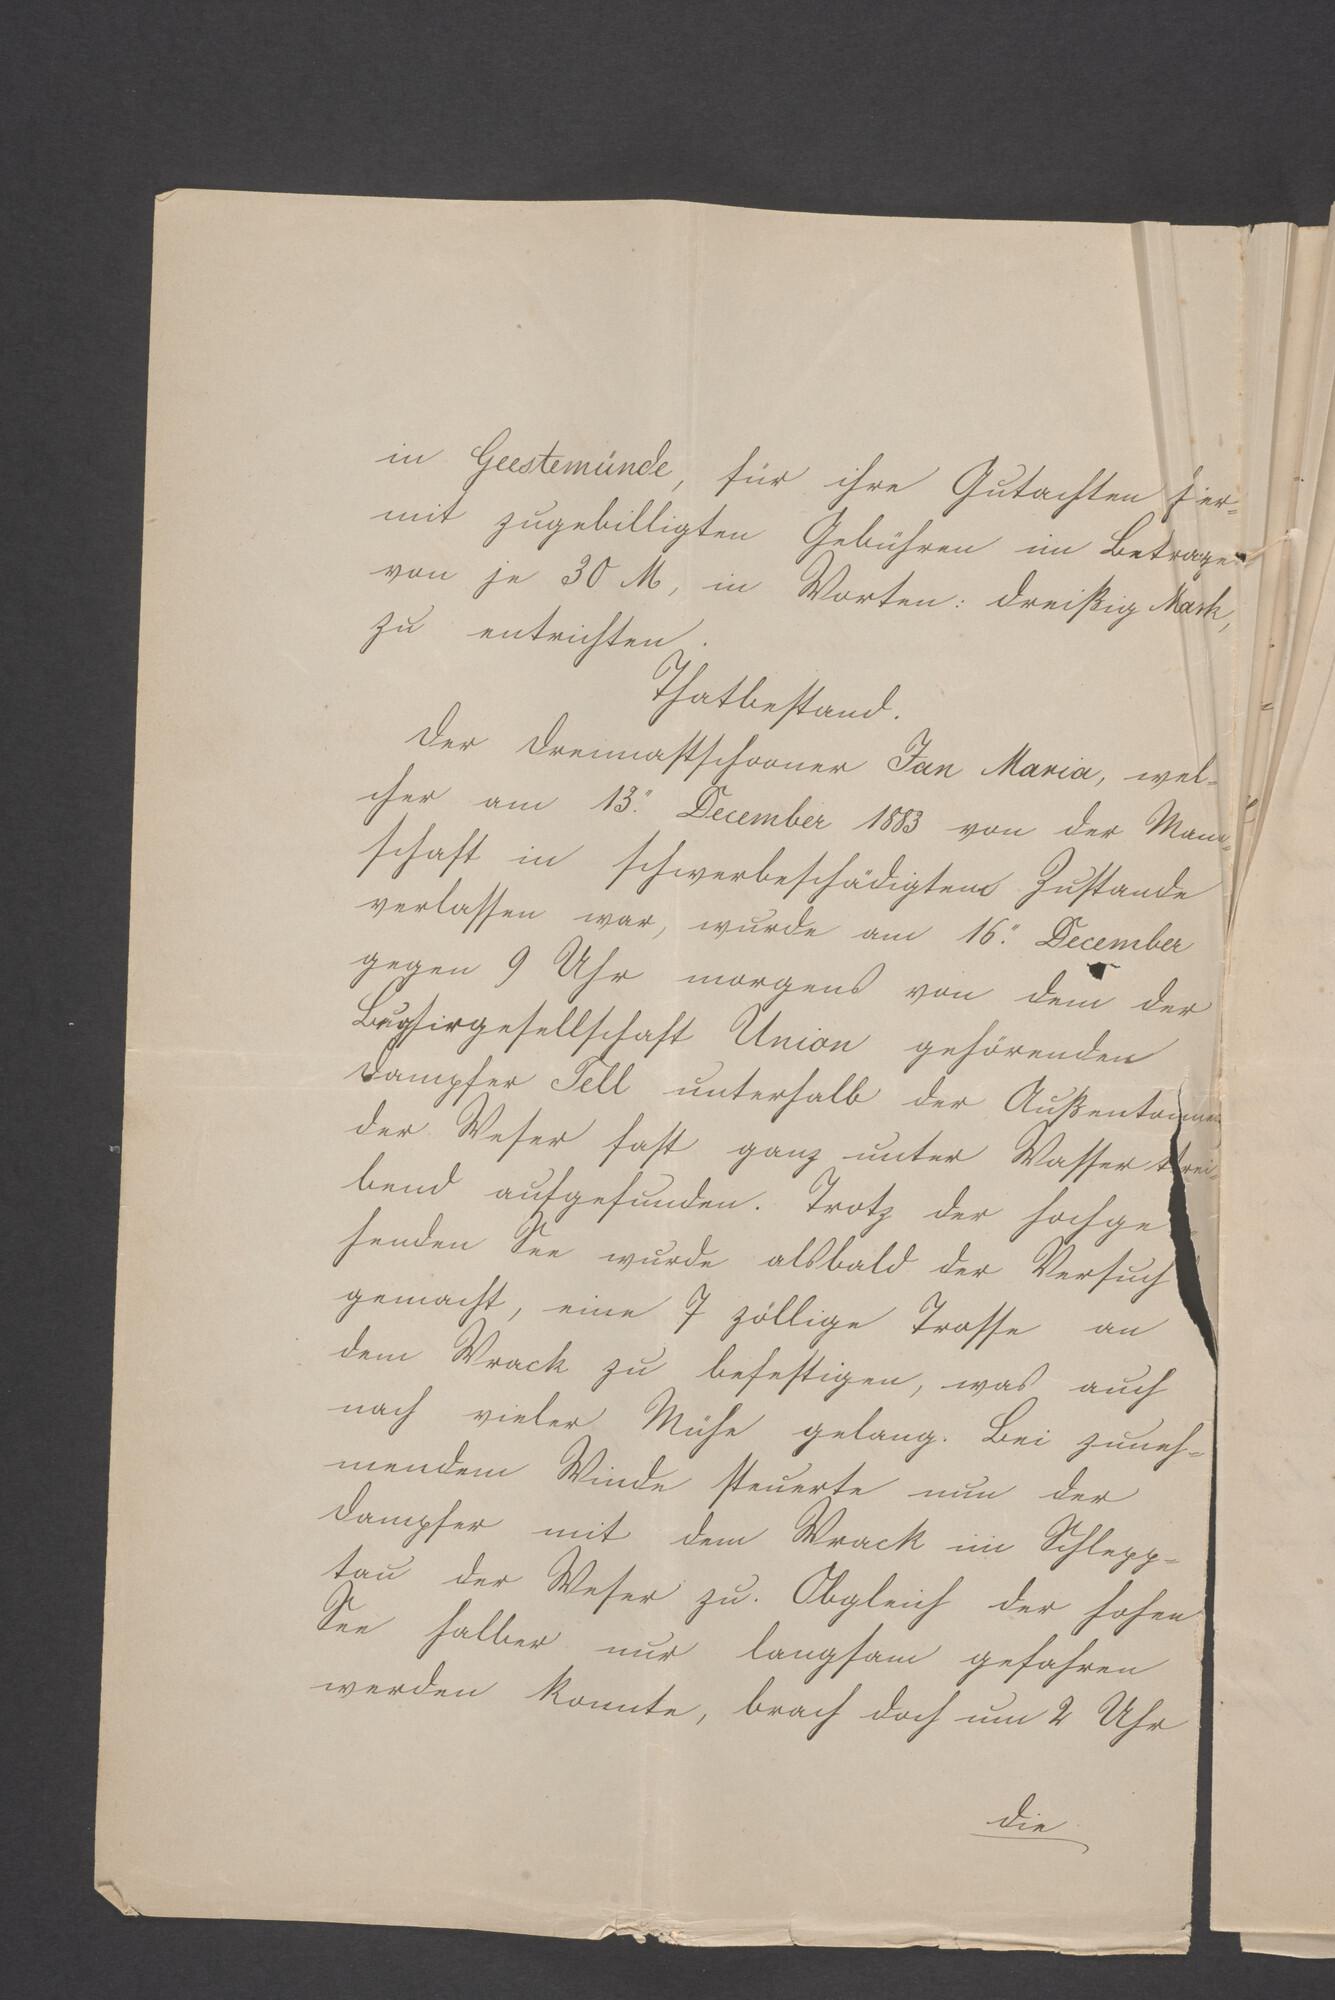 in Geestemünde, für ihre Gutachten hier-
mit zugebilligten Gebühren im Betrage
von je 30 M, in Worten: dreißig Mark,
zu entrichten.
Thatbestand.
Der Dreimastschooner Jan Maria, wel-
cher am 13." December 1883 von der Mann-
schaft in schwerbeschädigtem Zustande
verlassen war, wurde am 16." December
gegen 9 Uhr morgens von dem der
Bugsirgesellschaft Union gehörenden
Dampfer Tell unterhalb der Außentonne
der Weser fast ganz unter Wasser trei-
bend aufgefunden. Trotz der hochge
henden See wurde alsbald der Versuch
gemacht, eine 7 zöllige Trosse an
dem Wrack zu befestigen, was auch
nach vieler Mühe gelang. Bei zuneh-
mendem Winde steuerte nun der
Dampfer mit dem Wrack im Schlepp-
tau der Weser zu. Obgleich der hohen
See halber nur langsam gefahren
werden konnte, brach doch um 2 Uhr
die